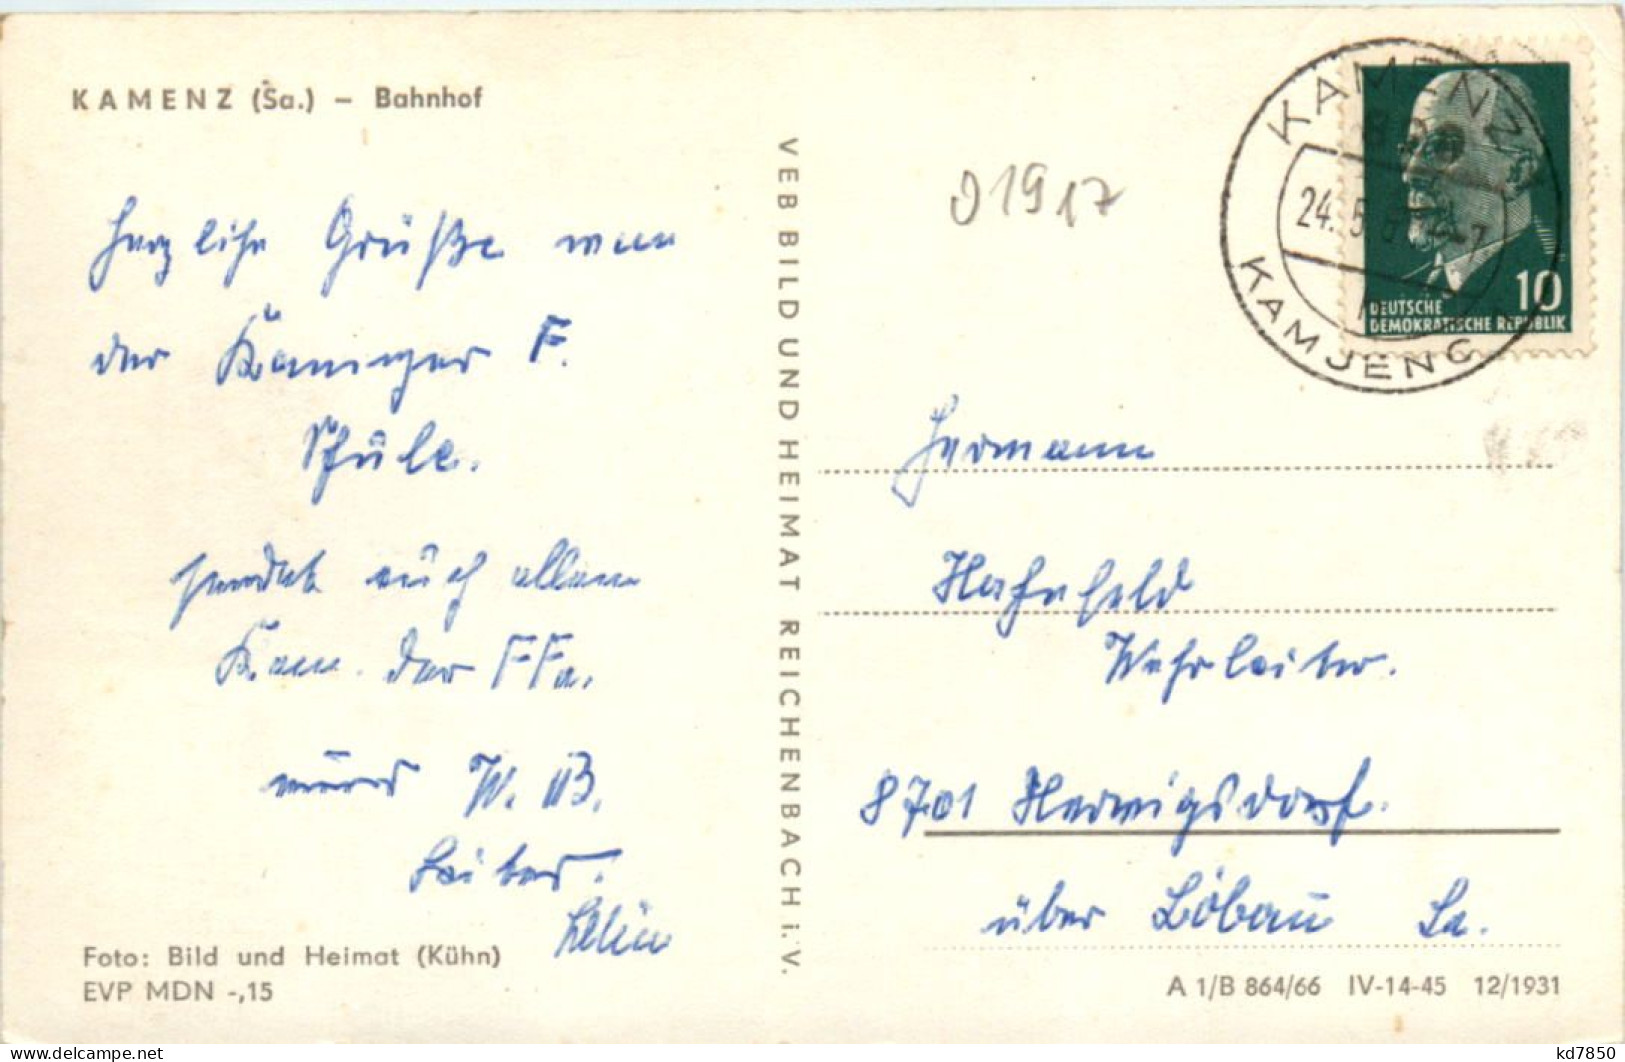 KAMENZ (Sa.) – Bahnhof
Herzliche Grüße von
der Kamenzer F.
Schule.
sendet auch allen
Kam. der FFw.
W.
Leiter.
Foto: Bild und Heimat (Kühn)
EVP MDN -,15
VEB BILD UND HEIMAT REICHENBACH i. V.
01917
KAMENZ
24.5.
KAMJENC
10
DEUTSCHE
DEMOKRATISCHE REPUBLIK
Hermann
Hahnfeld
Wehrleiter.
8701 Herwigsdorf.
über Löbau Sa.
A 1/B 864/66 IV-14-45 12/1931
www.delcampe.net
kd7850